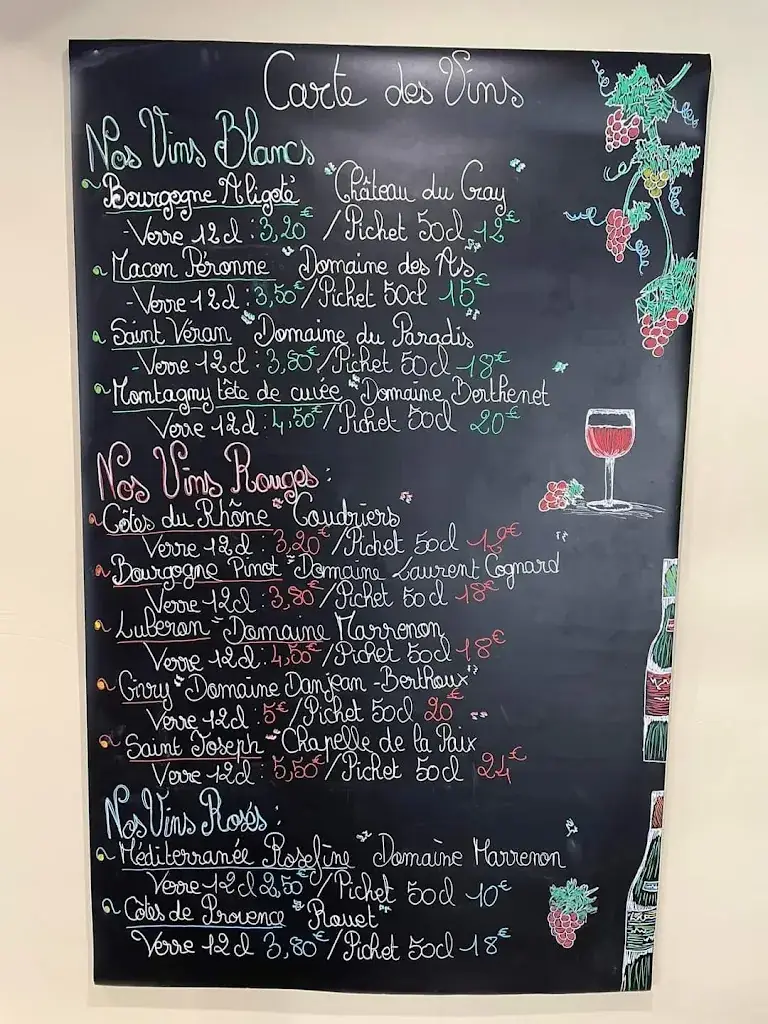 Carte des Vins
Nos Vins Blancs
Bourgogne Aligoté "Château du Cray"
- Verre 12cl : 3,20€ / Pichet 50cl 12€
Macon Péronne "Domaine des As"
- Verre 12cl : 3,50€ / Pichet 50cl 15€
Saint Véran "Domaine du Paradis"
- Verre 12cl : 3,80€ / Pichet 50cl 18€
Montagny tête de cuvée "Domaine Berthenet"
Verre 12cl : 4,50€ / Pichet 50cl 20€
Nos Vins Rouges :
Côtes du Rhône "Coudriers"
Verre 12cl : 3,20€ / Pichet 50cl 12€
Bourgogne Pinot "Domaine Laurent Cognard"
Verre 12cl : 3,80€ / Pichet 50cl 18€
Luberon "Domaine Marrenon"
Verre 12cl : 4,50€ / Pichet 50cl 18€
Givry "Domaine Danjean-Berthoux"
Verre 12cl : 5€ / Pichet 50cl 20€
Saint Joseph "Chapelle de la Paix"
Verre 12cl : 5,50€ / Pichet 50cl 24€
Nos Vins Rosés :
Méditerranée Rosefine "Domaine Marrenon"
Verre 12cl 2,50€ / Pichet 50cl 10€
Côtes de Provence "Rouet"
Verre 12cl 3,80€ / Pichet 50cl 18€